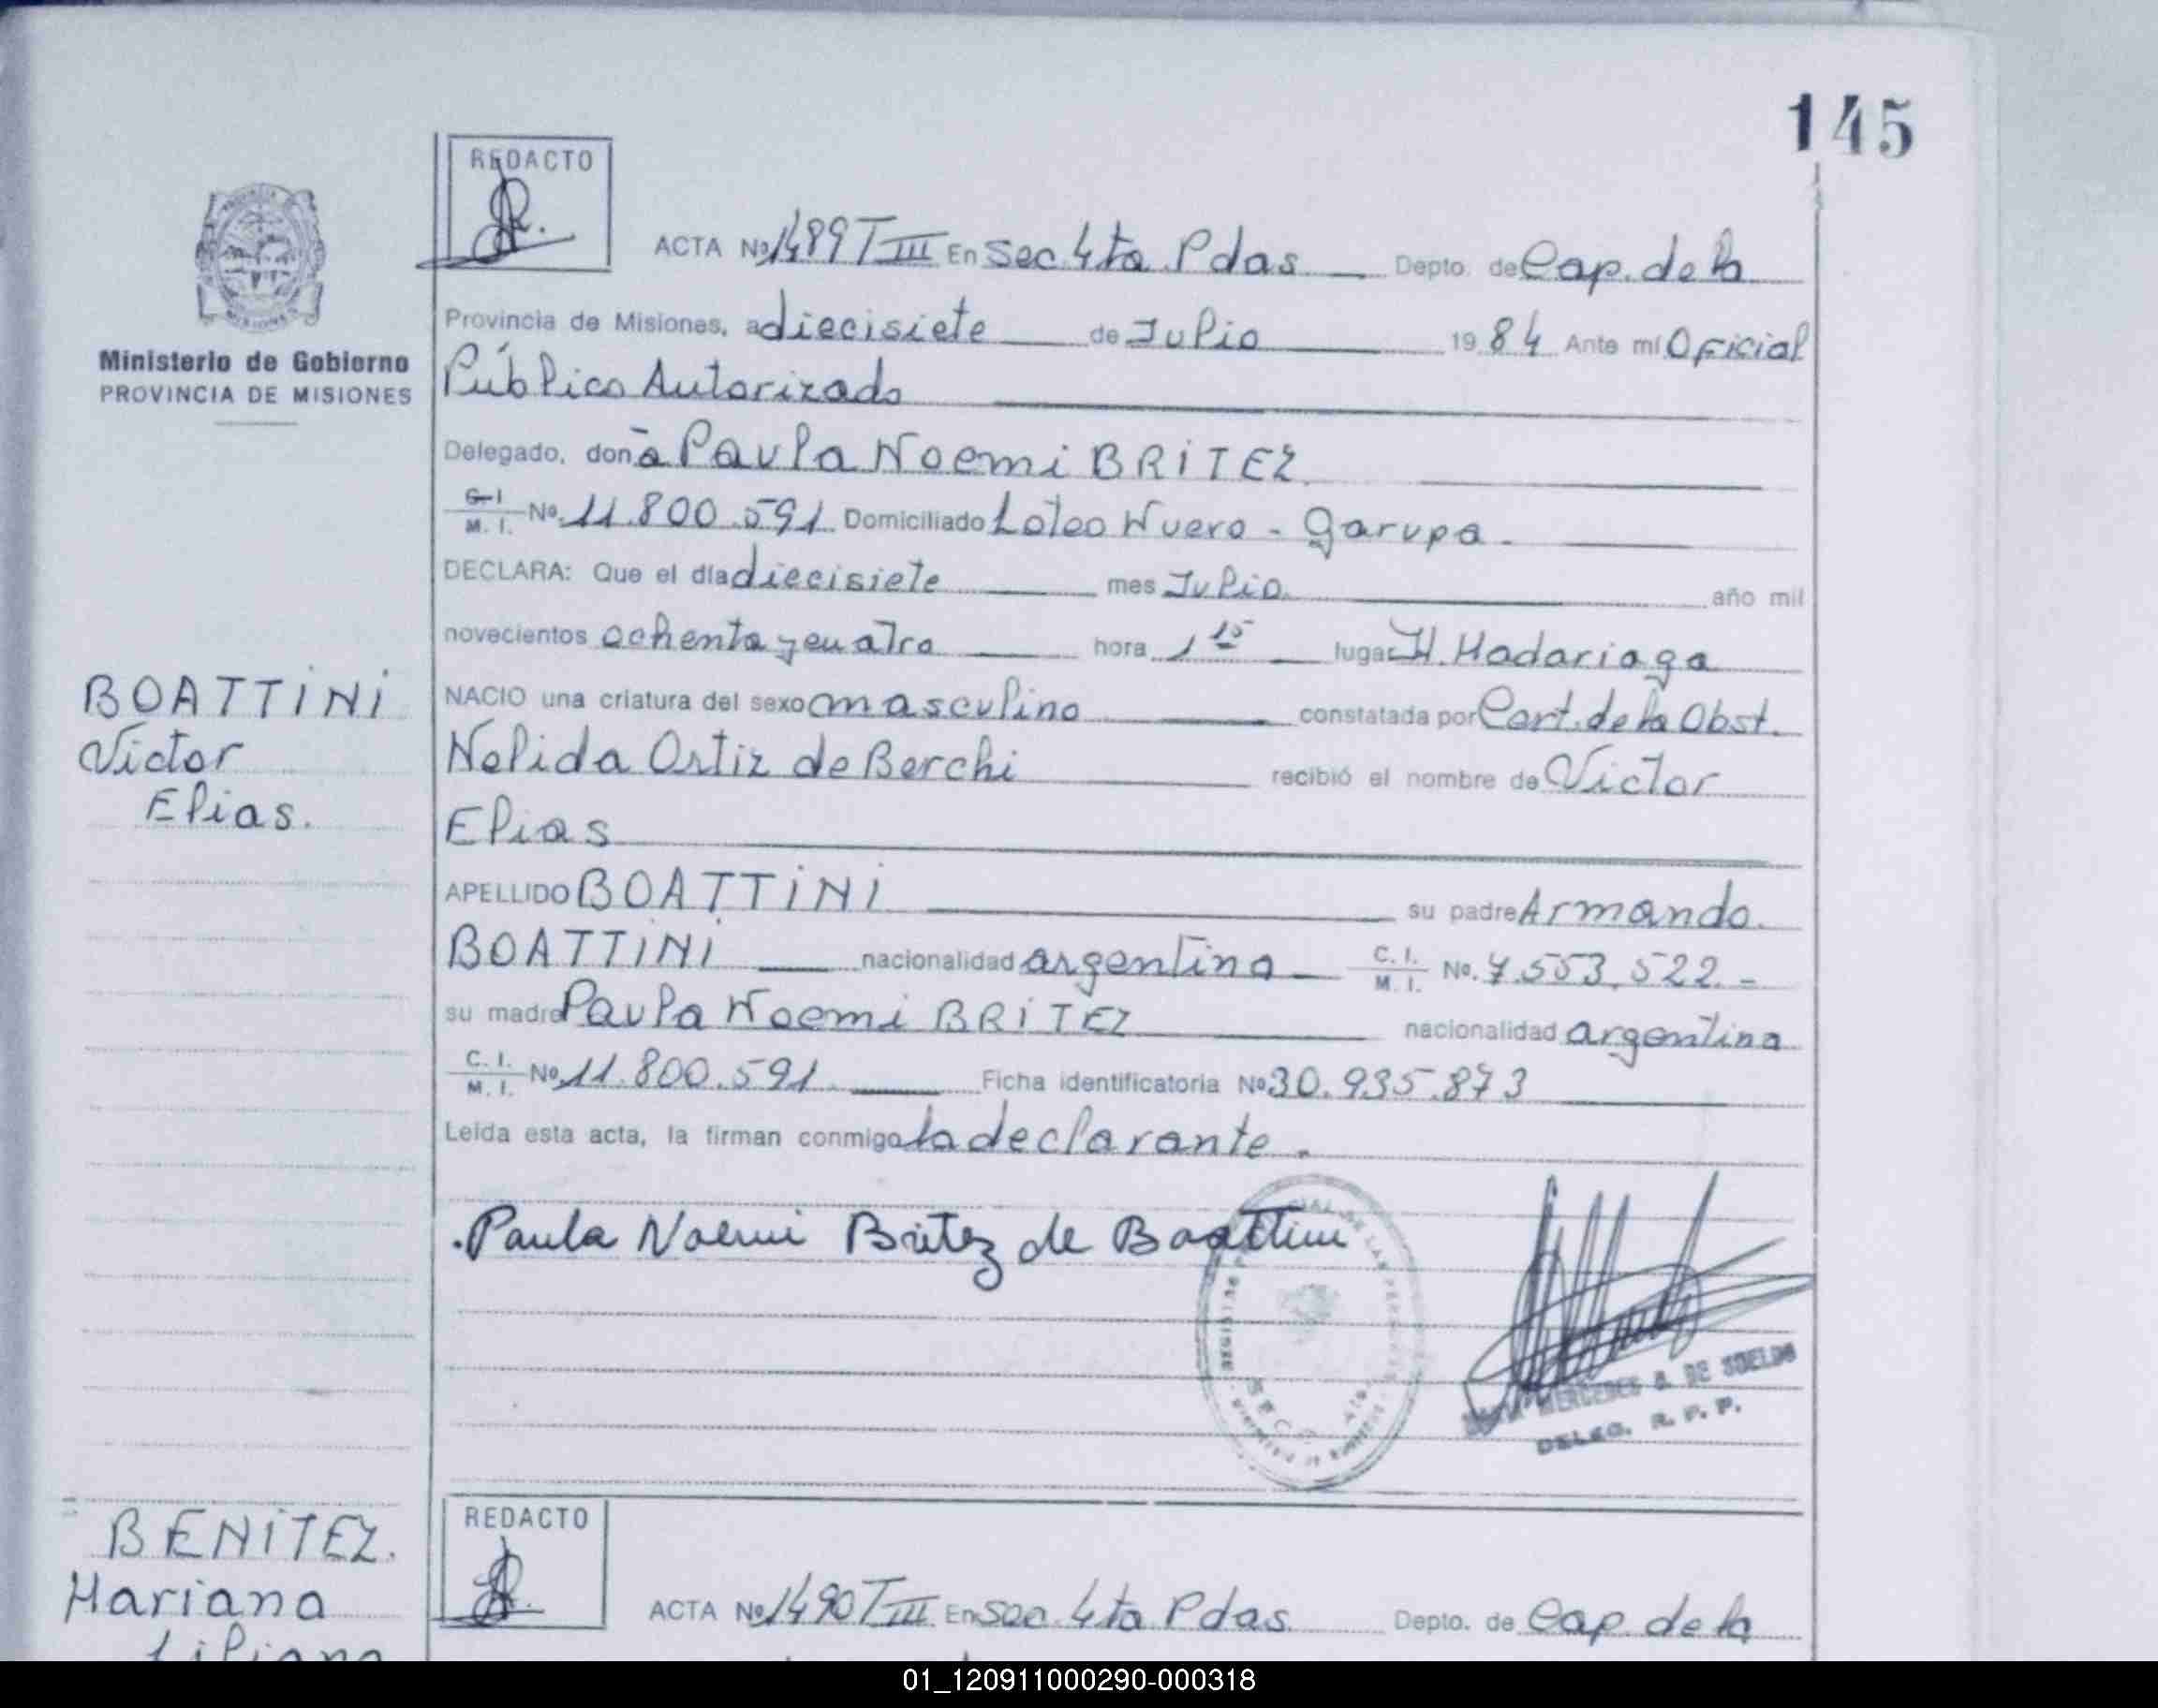 145
REDACTO
ACTA Nº 1489 T III En Sec. 4ta Pdas Depto. de Cap. de la
Provincia de Misiones, a diecisiete de Julio 19 84 Ante mí Oficial
Ministerio de Gobierno
PROVINCIA DE MISIONES
Público Autorizado
Delegado, doña Paula Noemi BRITEZ
C.I. M.I. Nº 11.800.591 Domiciliado Loteo Nuevo - Garupa.
DECLARA: Que el día diecisiete mes Julio año mil
novecientos ochenta y cuatro hora 1 15 lugar H. Madariaga
BOATTINI
Victor
Elias.
NACIO una criatura del sexo masculino constatada por Cert. de la Obst.
Nelida Ortiz de Berchi recibió el nombre de Victor
Elias
APELLIDO BOATTINI su padre Armando
BOATTINI nacionalidad argentina C.I. M.I. No. 7.553.522.-
su madre Paula Noemi BRITEZ nacionalidad argentina
C.I. M.I. Nº 11.800.591 Ficha identificatoria Nº 30.935.873
Leída esta acta, la firman conmigo la declarante.
Paula Noemi Britez de Boattini
MERCEDES A. DE SUELDO
DELEG. R. P. P.
BENITEZ.
Mariana
Liliana
REDACTO
ACTA Nº 1490 T III En Sec. 4ta Pdas Depto. de Cap. de la
01_120911000290-000318